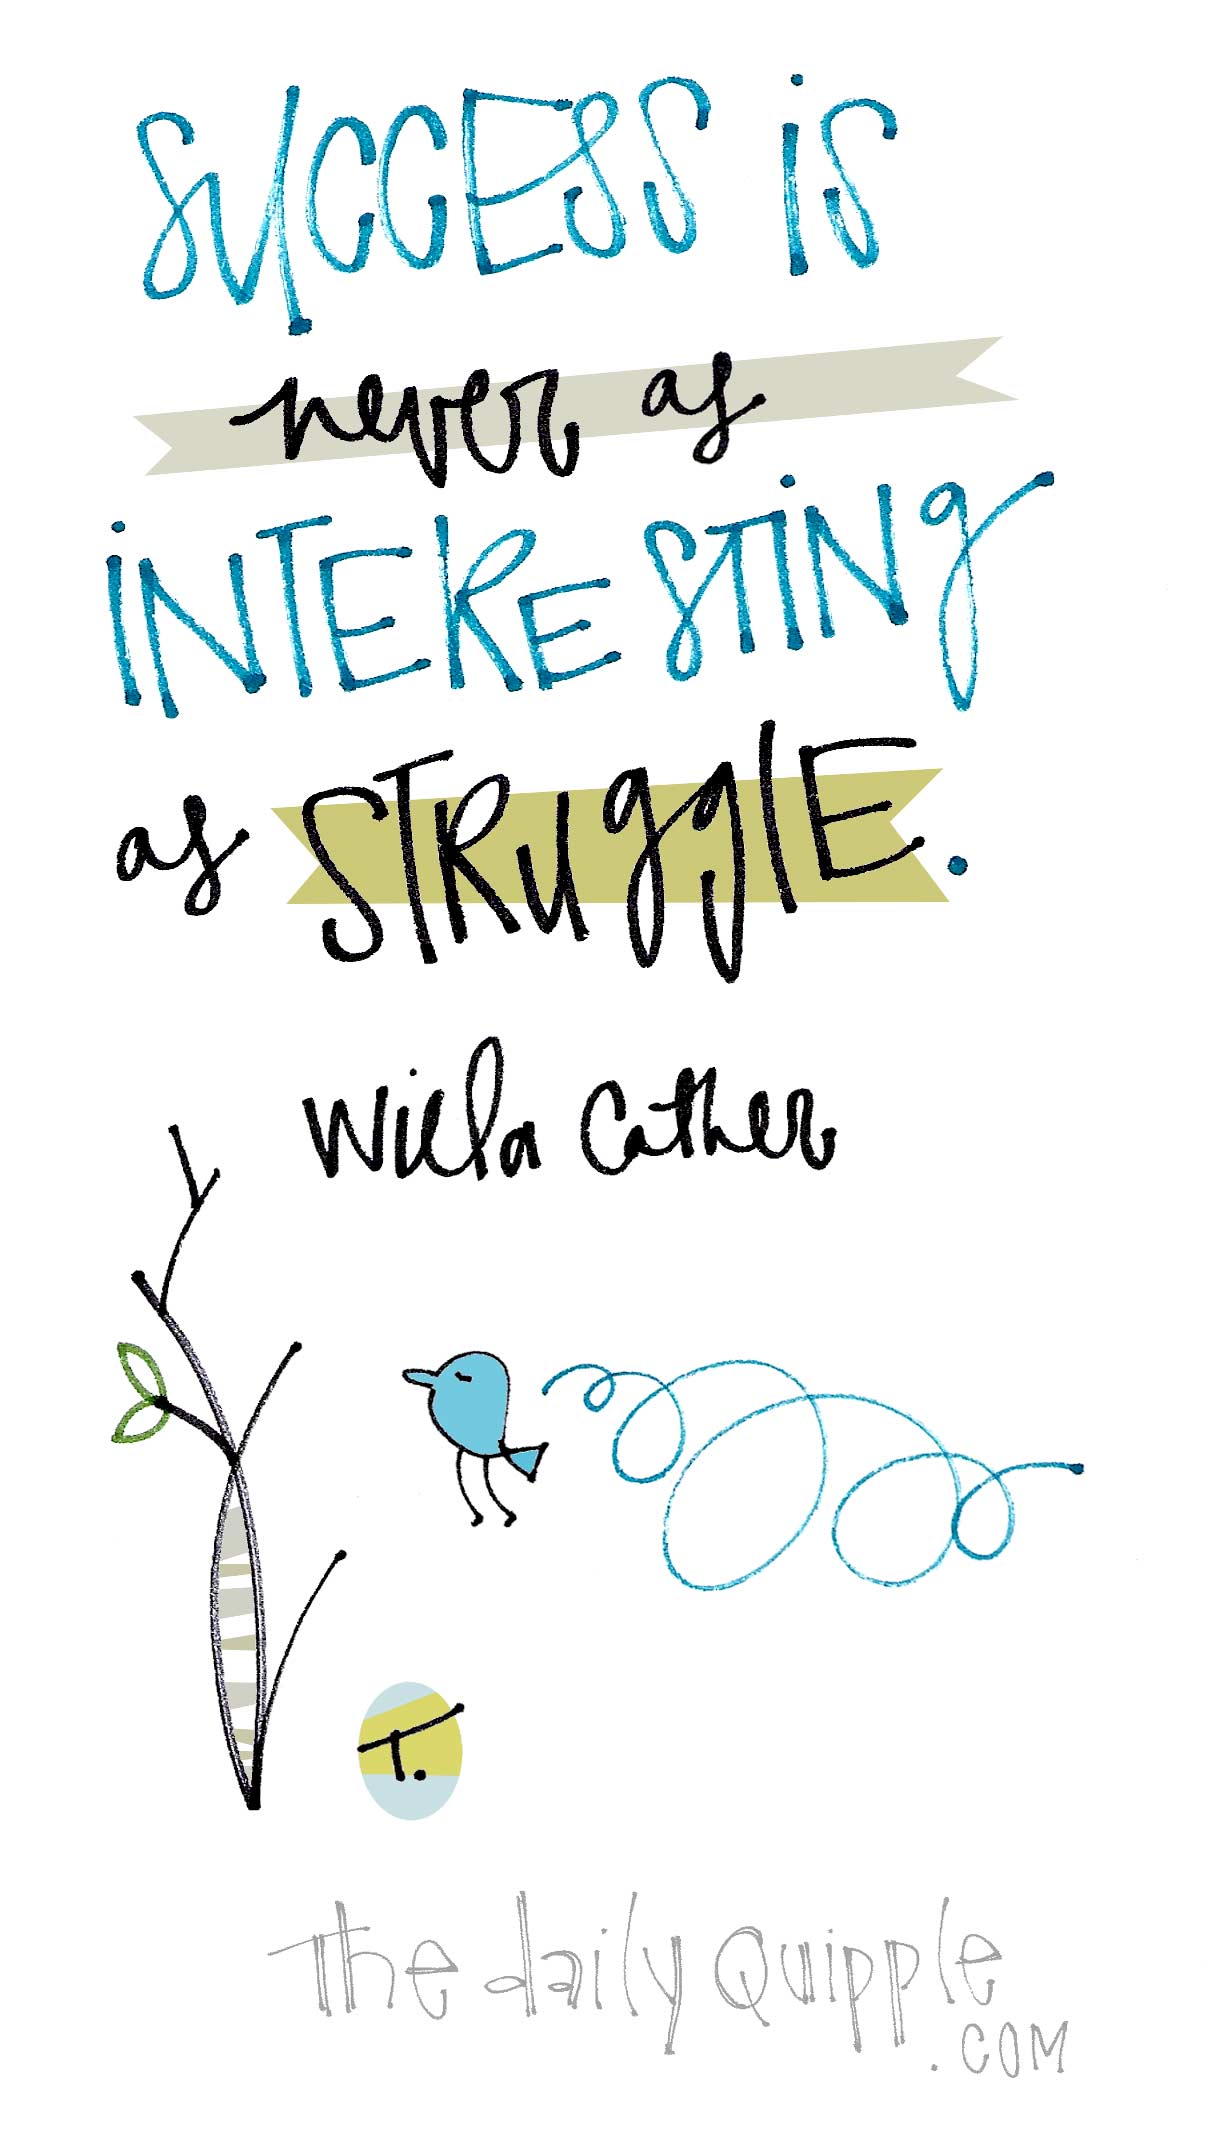 SUCCESS iS
never as
iNTERESTiNg
as STRUgglE.
Willa Cather
T.
The daily Quipple
.COM